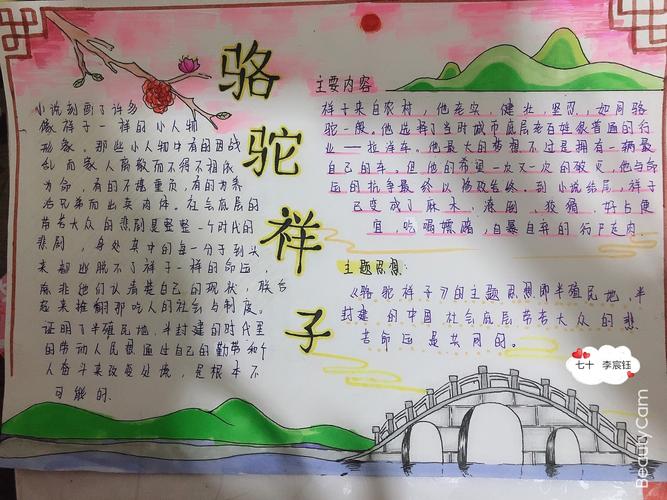 骆驼祥子
小说刻画了许多
像祥子一样的小人物
形象。那些小人物中有的因战
乱而家人离散而不得不相依
为命,有的不堪重负,有的为养
活兄弟而出卖肉体。社会底层的
劳苦大众的悲剧是整整一个时代的
悲剧,身处其中的每一分子到头
来都逃脱不了祥子一样的命运,
麻非他们认清楚自己的现状,联合
起来推翻那吃人的社会与制度。
证明了半殖民地,半封建的时代里
的劳动人民想通过自己的勤劳和个
人奋斗来改变处境,是根本不
可能的、
主要内容
祥子来自农村,他老实,健壮,坚忍,如同骆
驼一般。他选择了当时城市底层老百姓很普通的行
业——拉洋车。他最大的梦想不过是拥有一辆最
自己的车。但他的希望一次又一次的破灭,他与命
运的抗争最终以惨败告终。到小说结尾,祥子
已变成了麻木、潦倒、狡猾、好占便
宜,吃喝嫖赌,自暴自弃的行尸走肉
主题思想:
《骆驼祥子》的主题思想即半殖民地,半
封建的中国社会底层劳苦大众的悲
苦命运是共同的。
七十 李宸钰
BeautyCam